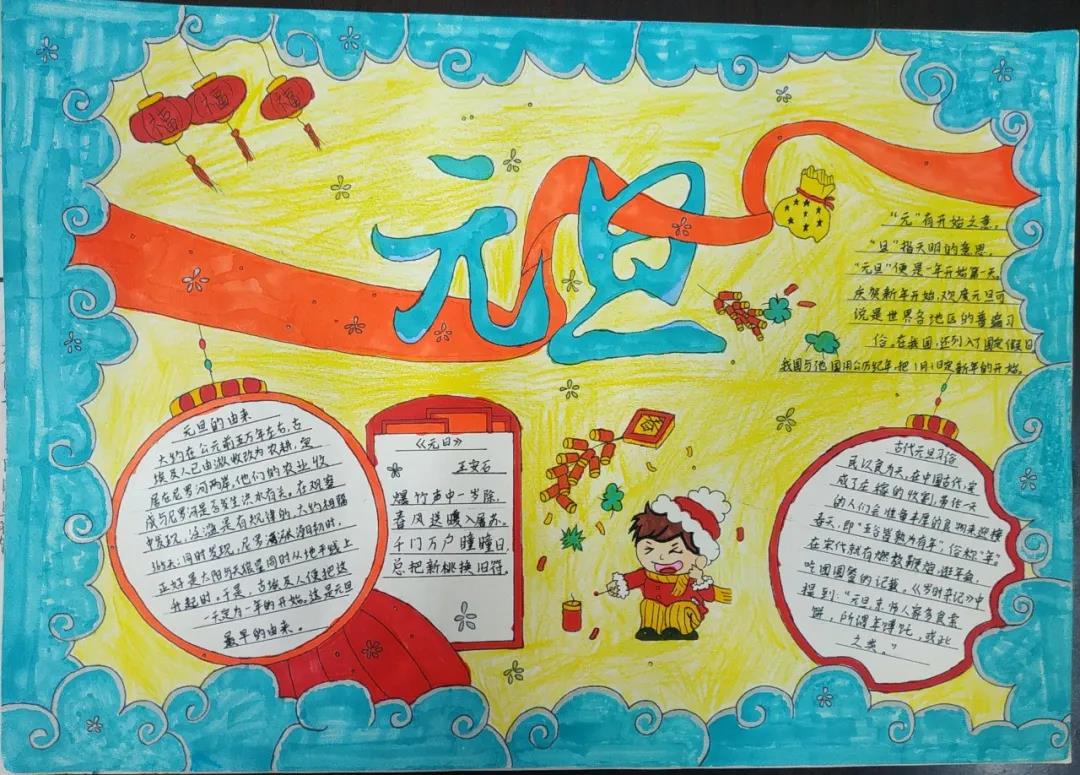 福
福
福
元旦
"元"有开始之意,
"旦"指天明的意思.
"元旦"便是一年开始第一天.
庆贺新年开始,欢度元旦可
说是世界各地区的普遍习
俗.在我国,还列入了国定假日
我国与他国用公历纪年,把1月1日定新年的开始.
元旦的由来
大约在公元前五万年左右,古
埃及人已由游牧改为农耕,定
居在尼罗河两岸,他们的农业收
成与尼罗河是否发生洪水有关。在观察
中发现,泛滥是有规律的,大约相隔
365天;同时发现,尼罗潮初时,
正好是太阳与天狼星同时从地平线上
升起时。于是,古埃及人便把这
一天定为一年的开始。这是元旦
最早的由来。
《元日》
王安石
爆竹声中一岁除,
春风送暖入屠苏.
千门万户曈曈日,
总把新桃换旧符.
古代元旦习俗
民以食为天,在中国古代,完
成了庄稼的收割,第一天
的人们会准备丰厚的食物来迎接
春天,即"五谷皆熟为有年"俗称"年"。
在宋代就有燃放鞭炮,逛年会,
吃团圆餐的记载。《岁时杂记》中
提到:"元旦,京师人家多食索
饼,所谓年馎饦,或此
之类。"